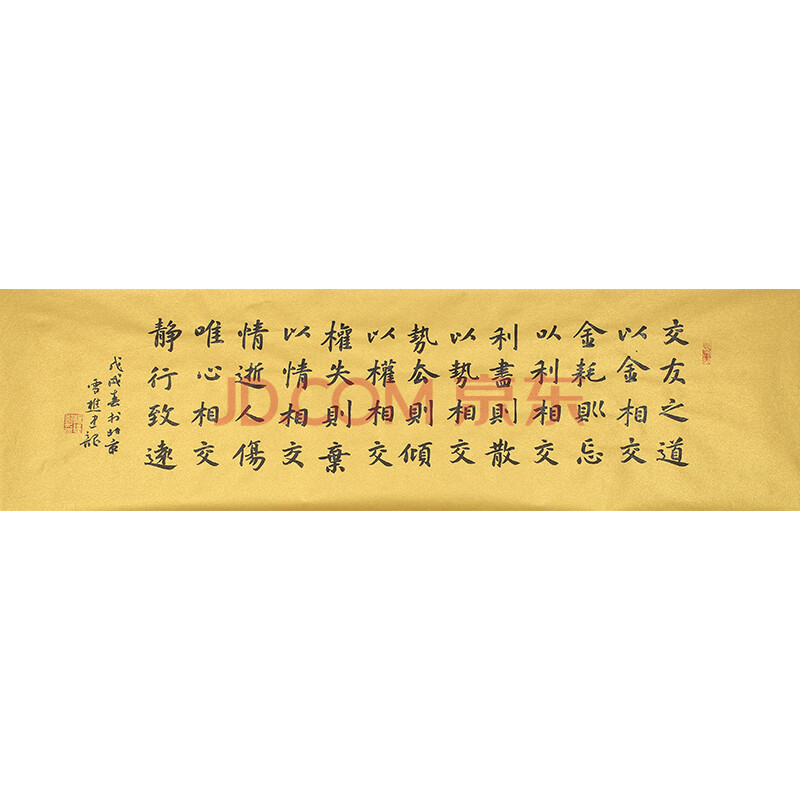 交友之道
以金相交
金耗則忘
以利相交
利盡則散
以勢相交
勢去則傾
以權相交
權失則棄
以情相交
情逝人傷
唯心相交
静行致遠
戊戌春书北京
雪樵建龍
JD.COM 京东